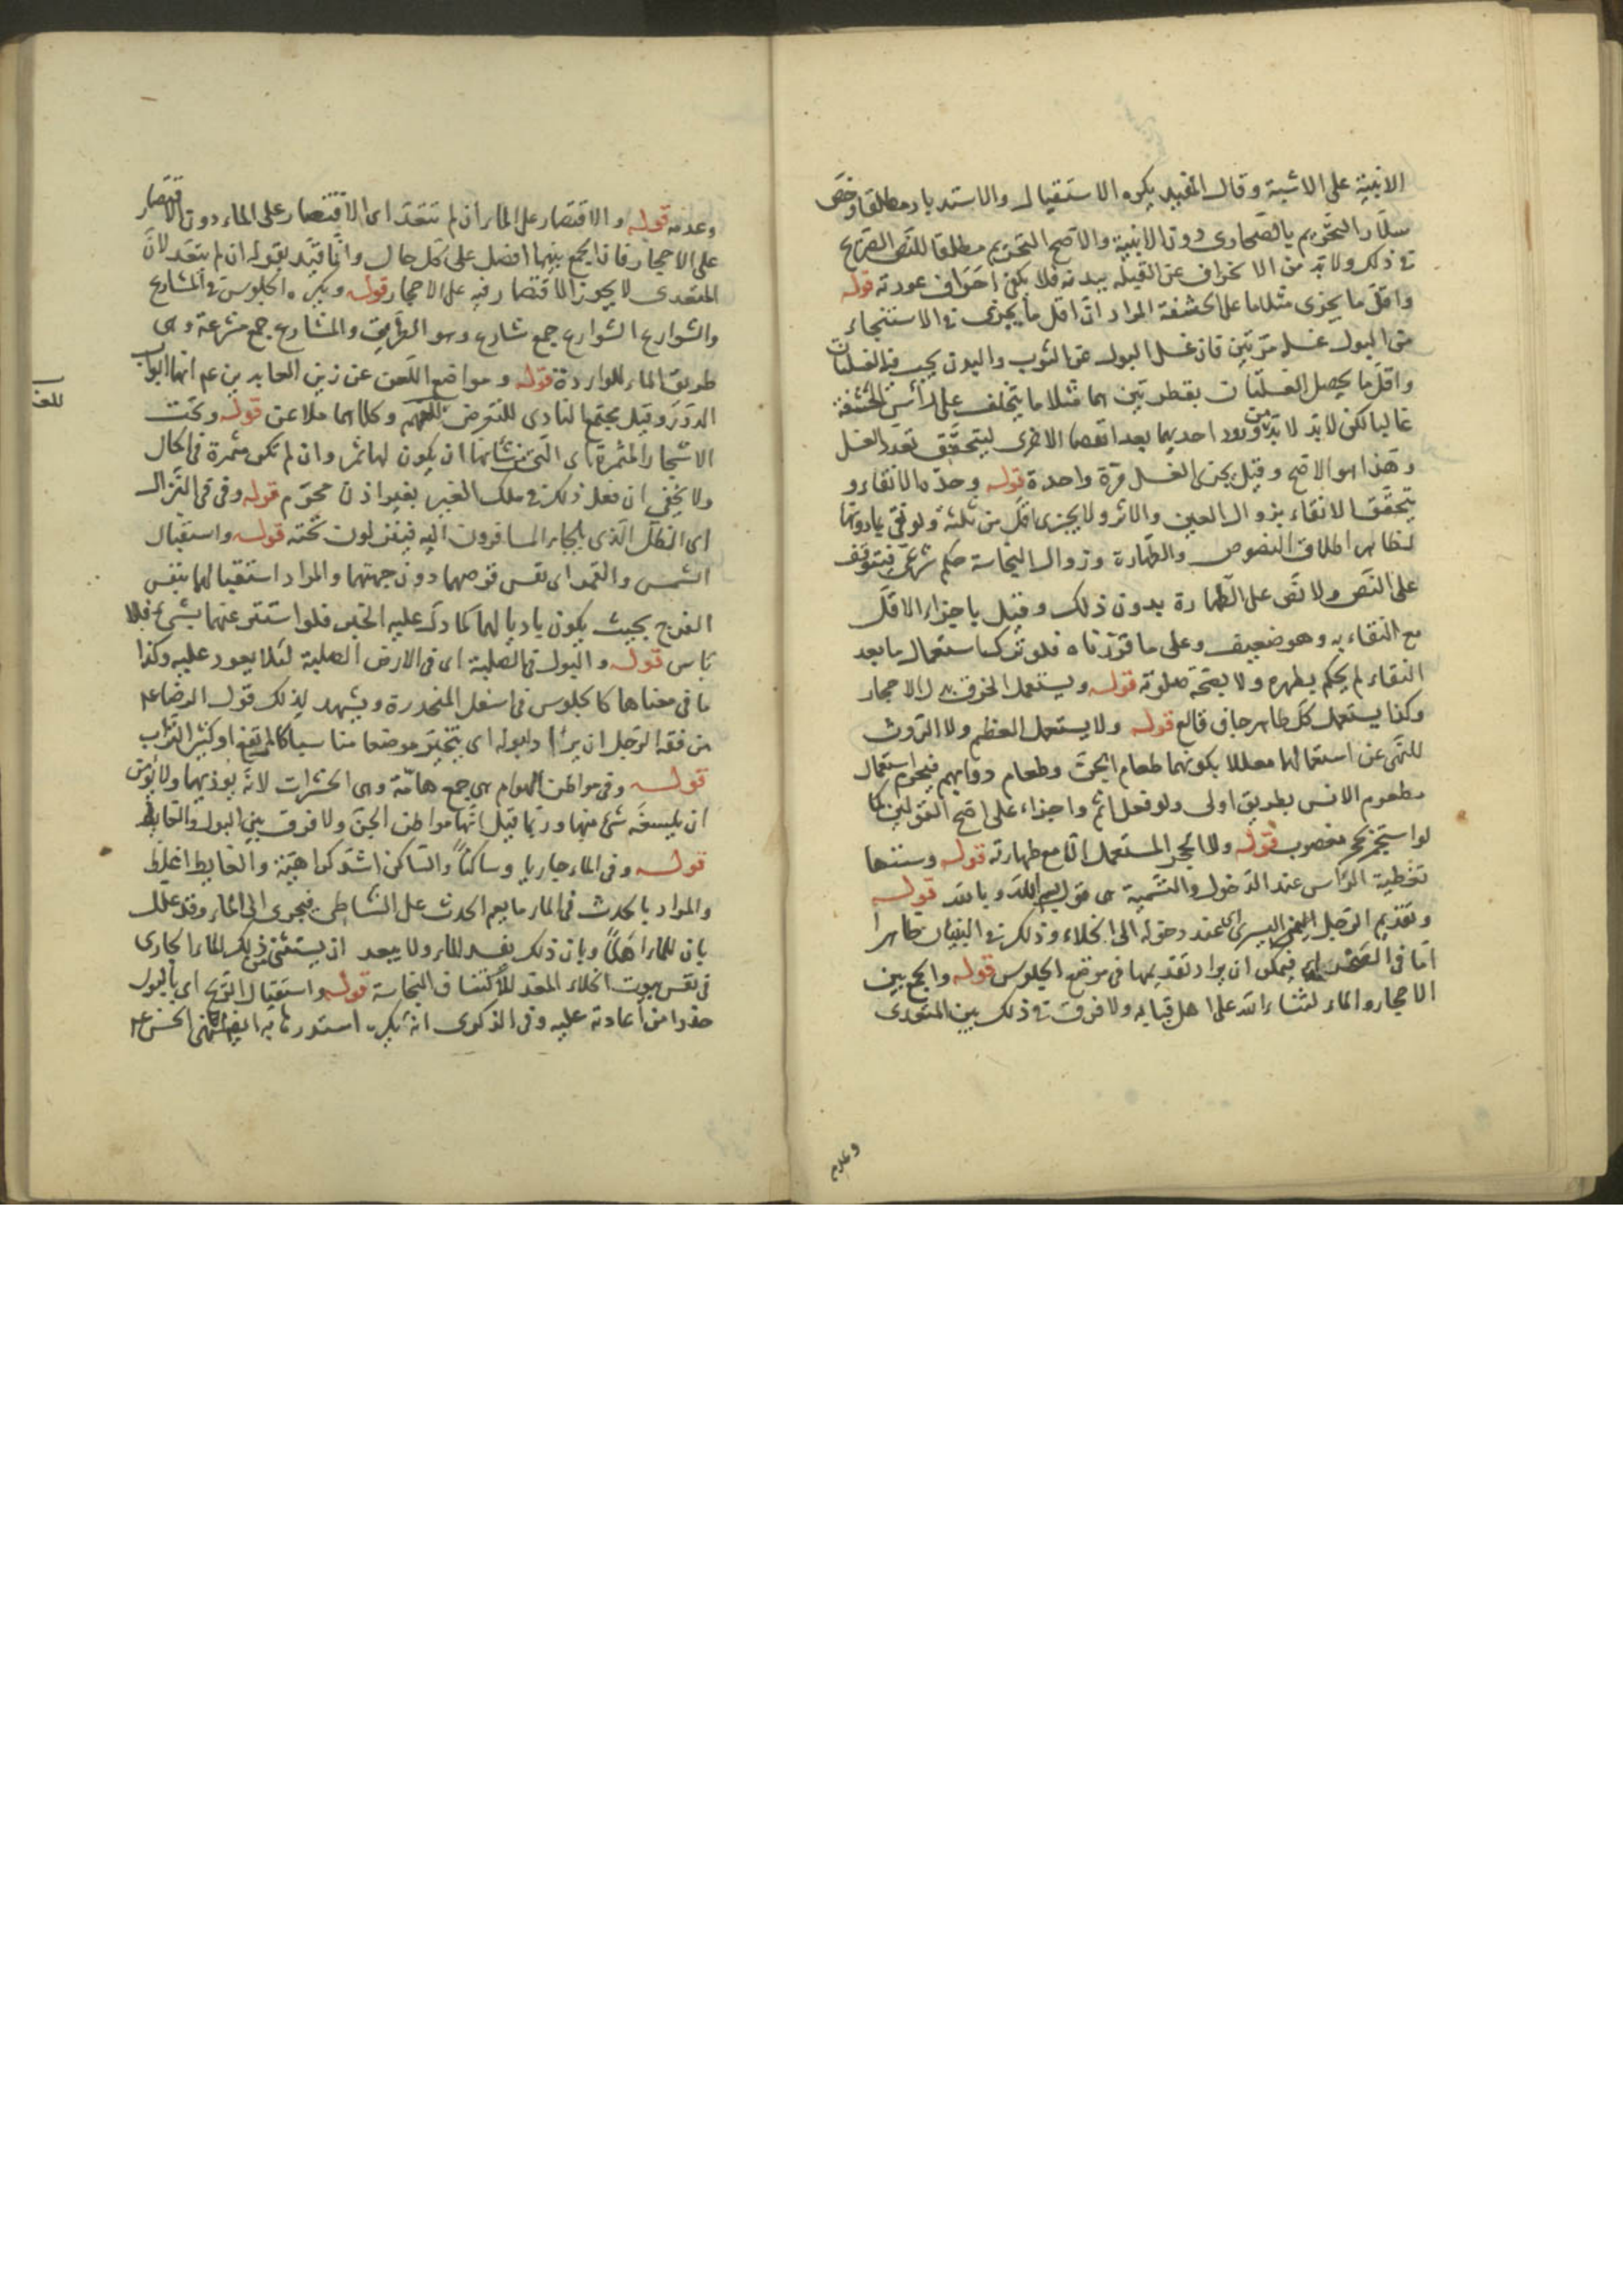 الابنية على الاشبة وقال المفيد يكره الاستقبال والاستدبار مطلقا وخص
سلار التحريم بالصحارى دون الابنية والاصح التحريم مطلقا للنص الصريح
في ذلك ولا بد من الانحراف عن القبلة ببدنه فلا يكفى انحراف عورته قوله
واقل ما يجزى مثلا ما على الحشفة المراد ان اقل ما يجزى في الاستنجاء
من البول غسله مرتين فان غسل البول عن الثوب والبدن يجب فيه الغسلتان
واقل ما يحصل الغسلتان بقطرتين هما مثلا ما يتخلف على رأس الحشفة
غالبا لكن لابد لابد من ورود احديهما بعد انفصال الاخرى ليتحقق تعدد الغسل
وهذا هو الاصح وقيل يجزى الغسل مرة واحدة قوله وحده الانقاء و
يتحقق الانقاء بزوال العين والاثر ولا يجزى اقل من ثلثة ولو نقى بما دونها
لظاهر اطلاق النصوص والطهارة وزوال النجاسة حكم شرعى فيتوقف
على النص ولا نص على الطهارة بدون ذلك وقيل باجزاء الاقل
مع النقاء به وهو ضعيف وعلى ما قررناه فلو ترك استعمال ما بعد
النقاء لم يحكم بطهره ولا بصحة صلوته قوله ويستعمل الخزف بدل الاحجار
وكذا يستعمل كل طاهر جاف قالع قوله ولا يستعمل العظم ولا الروث
للنهى عن استعمالها معللا بكونهما طعام الجن وطعام دوابهم فيحرم استعمال
مطعوم الانس بطريق اولى ولو فعل اثم واجزاء على اصح القولين كما
لو استجمر بحجر مغصوب قوله ولا الحجر المستعمل الا مع طهارته قوله وسننها
تغطية الرأس عند الدخول والتسمية اى قول بسم الله وبالله قوله
وتقديم الرجل اليسرى اى عند دخوله الى الخلاء وذلك في البنيان ظاهرا
اما فى الصحراء فيمكن ان يراد تقديمها فى موضع الجلوس قوله والجمع بين
الاحجار والماء لثناء الله على اهل قبا به ولا فرق في ذلك بين المتعدى
وعدم
وعدمه قوله والاقتصار على الماء ان لم تتعد اى الاقتصار على الماء دون الاقتصار
على الاحجار فان الجمع بينهما افضل على كل حال وانما قيد بقوله ان لم يتعد لان
المتعدى لا يجوز الاقتصار فيه على الاحجار قوله ويكره الجلوس في المشارع
والشوارع الشوارع جمع شارع وهو الطريق والمشارع جمع مشرعة وهى
طريق الماء للواردة قوله ومواضع اللعن عن زين العابدين عم انها ابواب
الدور وقيل مجتمع النادى للتعرض وكلاهما ملاعن قوله وتحت
الاشجار المثمرة اى التى من شأنها ان يكون لها ثمر وان لم تكن مثمرة فى الحال
ولا يخفى ان فعل ذلك في ملك الغير بغير اذن محرم قوله وفى فى النزال
اى الظل الذى يلجاء المسافرون اليه فينزلون تحته قوله واستقبال
الشمس والقمر اى نفس قرصهما دون جهتهما والمراد استقبالهما بنفس
الفرج بحيث يكون باديا لهما كما دل عليه الخبر فلو استتر عنهما بشىء فلا
باس قوله والبول فى الصلبة اى فى الارض الصلبة لئلا يعود عليه وكذا
ما فى معناها كالجلوس فى اسفل المنحدرة ويشهد لذلك قول الرضا ع
من فقه الرجل ان يرتاد لبوله اى يتخير موضعا مناسبا كالمرتفع او كثير التراب
قوله وفى مواطن الهوام هى جمع هامة وهى الحشرات لانه يؤذيها ولا يؤمن
ان يلسعه شىء منها وربما قيل انها مواطن الجن ولا فرق بين البول والغايط
قوله وفى الماء جاريا وساكنا والساكن اشد كراهية والغايط اغلظ
والمراد بالحدث فى الماء ما يعم الحدث على الشاطى فيجرى الى الماء وقد علل
بان للماء اهلا وبان ذلك يفسد الماء ولا يبعد ان يستثنى من ذلك الماء الجارى
فى نفس بيوت الخلاء المعد لاكتشاف النجاسة قوله واستقبال الريح اى بالبول
حذرا من اعادته عليه وفى الذكرى انه يكره استدبارها به ايضا لنهى الحسن ع